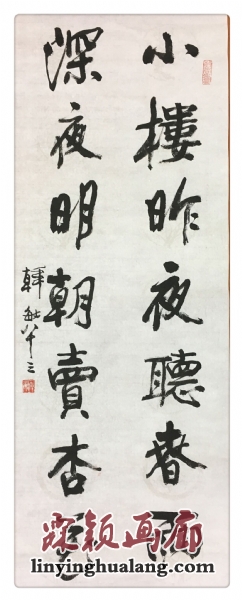 小樓昨夜聽春雨
深夜明朝賣杏花
韓敏八十三
颖画廊
linyinghualang.com